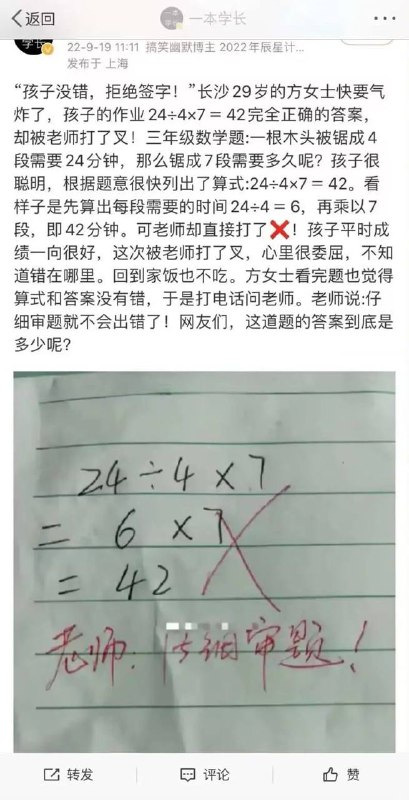 返回
一本学长
学长
22-9-19 11:11 搞笑幽默博主 2022年辰星计...
发布于 上海
“孩子没错，拒绝签字！”长沙29岁的方女士快要气
炸了，孩子的作业24÷4×7＝42完全正确的答案，
却被老师打了叉！三年级数学题:一根木头被锯成4
段需要24分钟，那么锯成7段需要多久呢？孩子很
聪明，根据题意很快列出了算式:24÷4×7＝42。看
样子是先算出每段需要的时间24÷4＝6，再乘以7
段，即42分钟。可老师却直接打了❌！孩子平时成
绩一向很好，这次被老师打了叉，心里很委屈，不知
道错在哪里。回到家饭也不吃。方女士看完题也觉得
算式和答案没有错，于是打电话问老师。老师说:仔
细审题就不会出错了！网友们，这道题的答案到底是
多少呢？
24÷4×7
= 6×7
= 42
老师：仔细审题！
转发
评论
赞